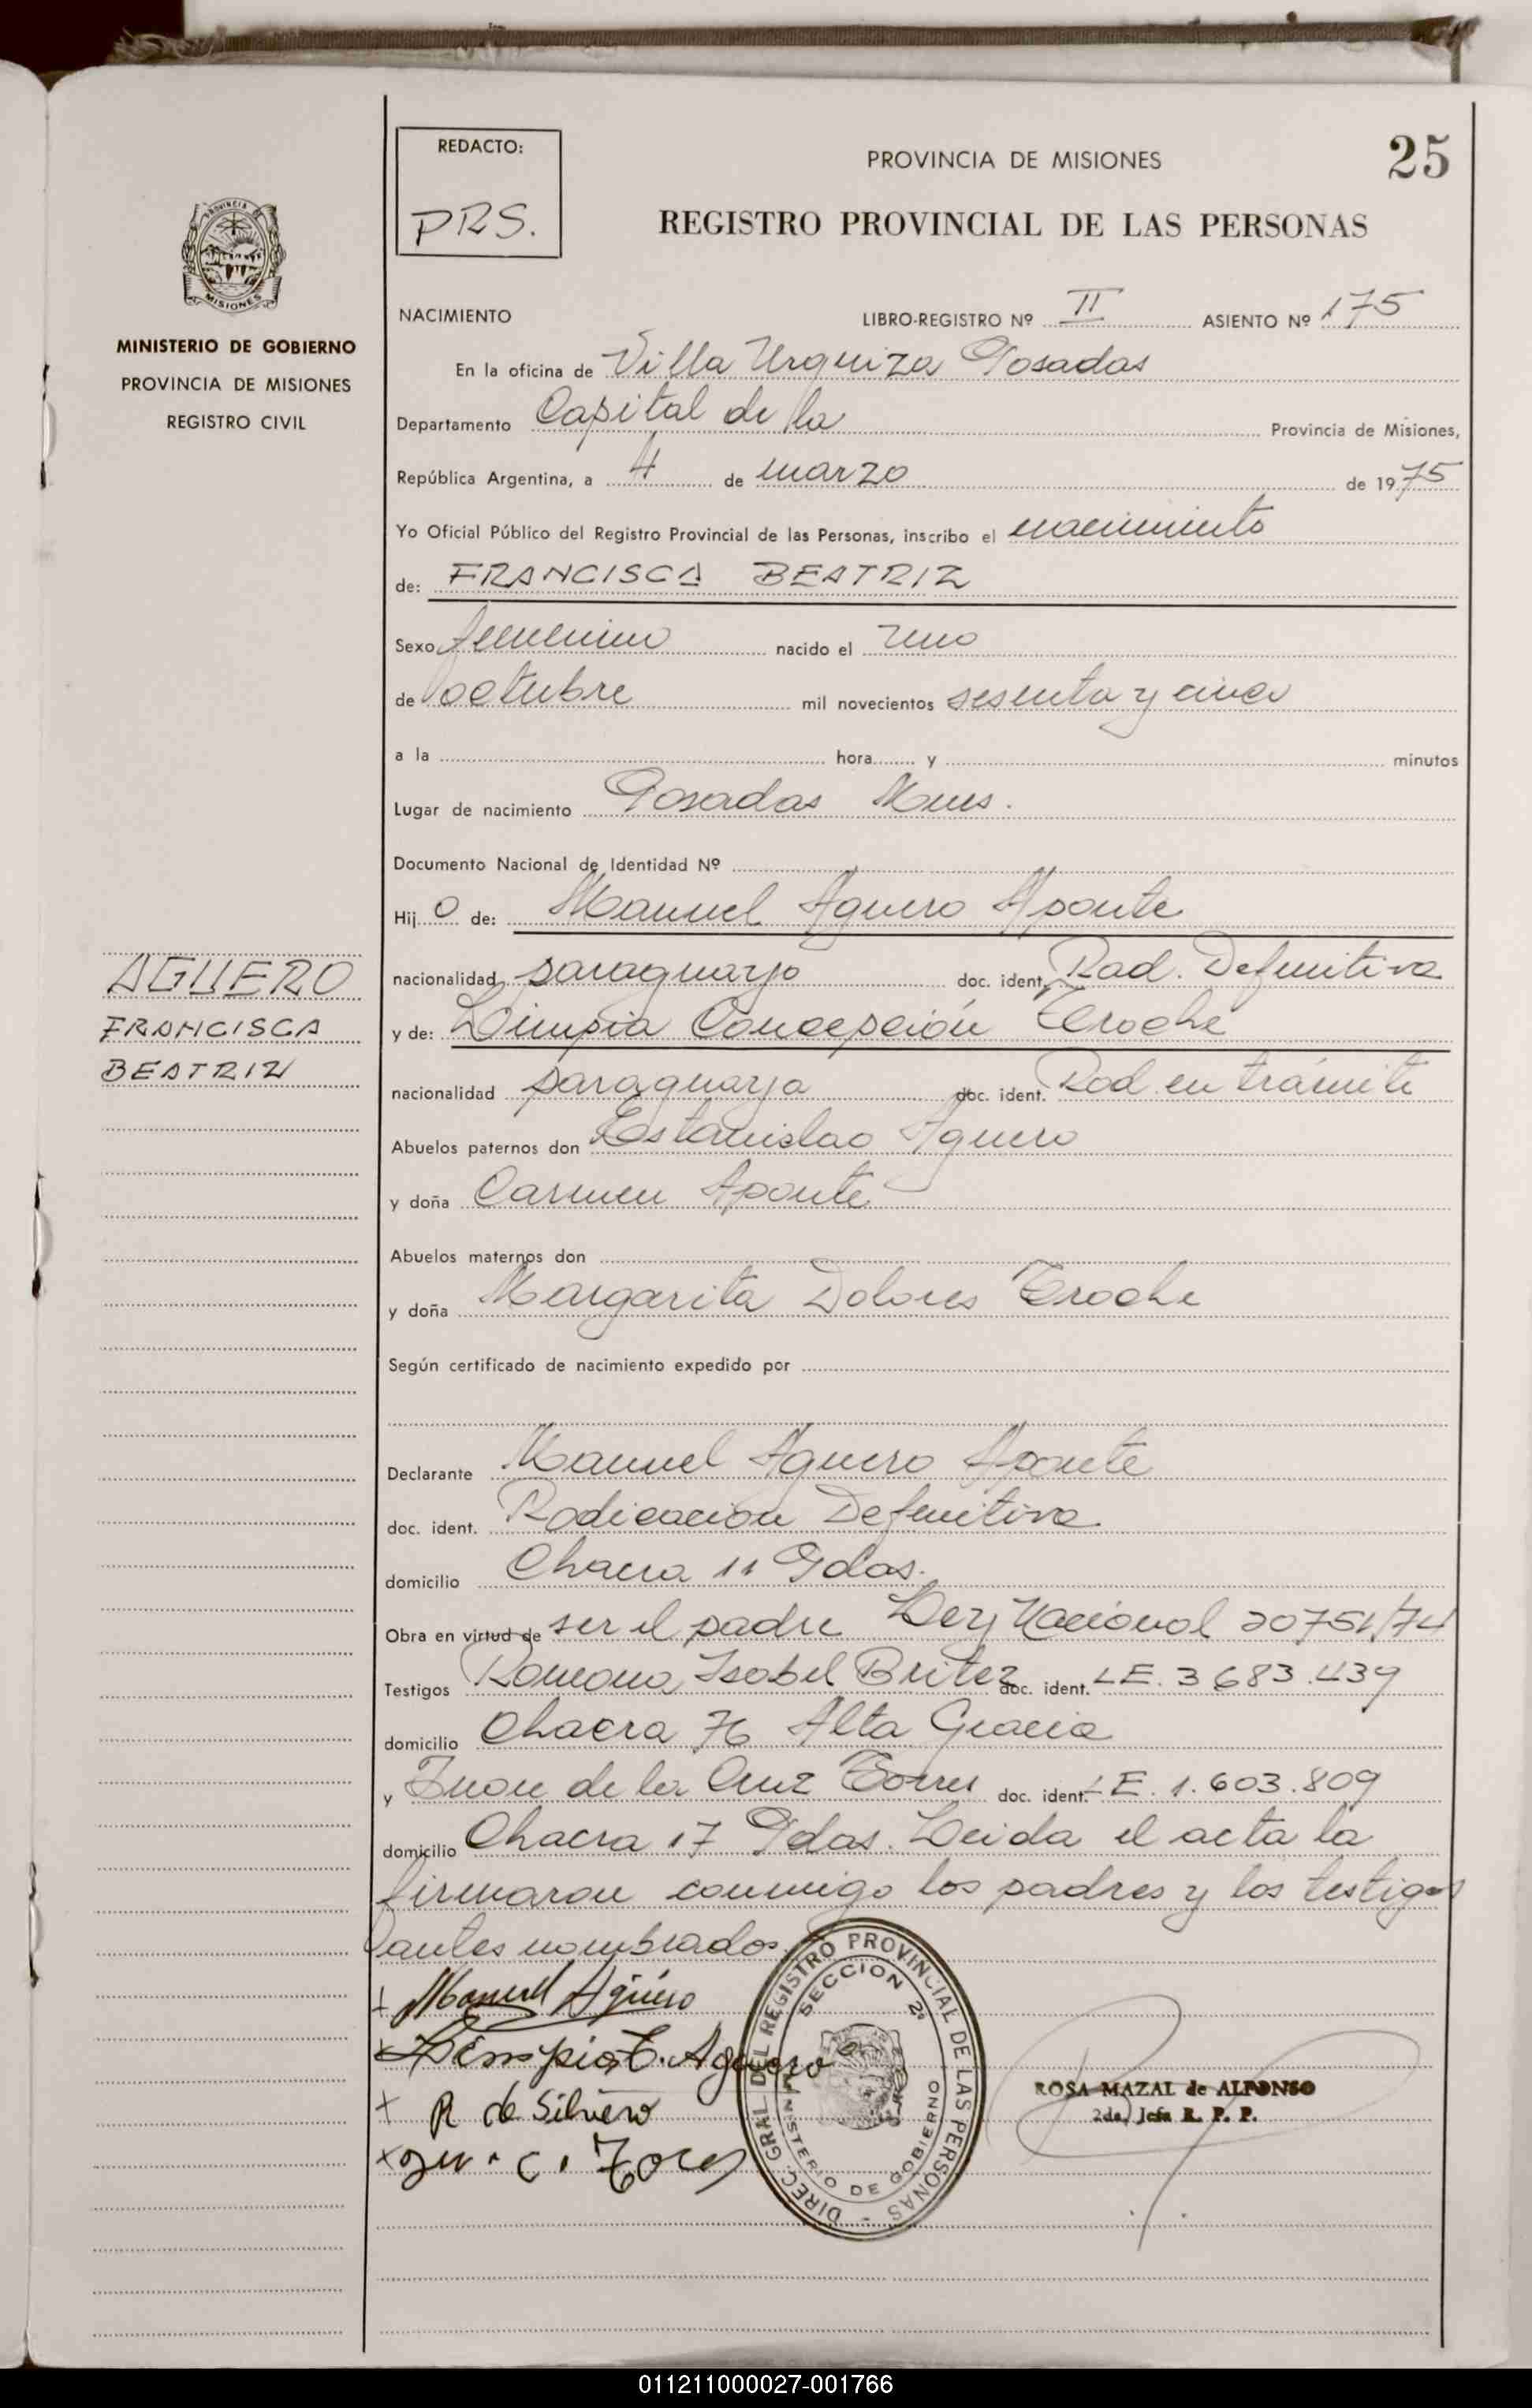 REDACTO:
PRS.
PROVINCIA DE MISIONES
25
REGISTRO PROVINCIAL DE LAS PERSONAS
PROVINCIA DE
MISIONES
MINISTERIO DE GOBIERNO
PROVINCIA DE MISIONES
REGISTRO CIVIL
NACIMIENTO LIBRO-REGISTRO Nº II ASIENTO Nº 175
En la oficina de Villa Urquiza Posadas
Departamento Capital de la Provincia de Misiones,
República Argentina, a 4 de marzo de 1975
Yo Oficial Público del Registro Provincial de las Personas, inscribo el nacimiento
de: FRANCISCA BEATRIZ
Sexo femenino nacido el uno
de octubre mil novecientos sesenta y cinco
a la hora y minutos
Lugar de nacimiento Posadas Mnes.
Documento Nacional de Identidad Nº
Hij o de: Manuel Aguero Aponte
AGUERO
FRANCISCA
BEATRIZ
nacionalidad paraguayo doc. ident. Rad. Definitiva
y de: Limpia Concepción Troche
nacionalidad paraguaya doc. ident. Rad. en trámite
Abuelos paternos don Estanislao Aguero
y doña Carmen Aponte
Abuelos maternos don
y doña Margarita Dolores Troche
Según certificado de nacimiento expedido por
Declarante Manuel Aguero Aponte
doc. ident. Radicación Definitiva
domicilio Chacra 11 Pdas.
Obra en virtud de ser el padre Ley Nacional 20751/74
Testigos Ramona Isabel Britez doc. ident. LE. 3683.439
domicilio Chacra 76 Alta Gracia
y Juan de la Cruz Torres doc. ident. LE. 1.603.809
domicilio Chacra 17 Pdas. Leida el acta la
firmaron conmigo los padres y los testigos
antes nombrados.
+ Manuel Agüero
x Limpia T. Aguero
+ R de Silvero
x C. Torres
DIREC. GRAL. DEL REGISTRO PROVINCIAL DE LAS PERSONAS
SECCION 2ª
MINISTERIO DE GOBIERNO
ROSA MAZAL de ALFONSO
2da. Jefa R. P. P.
011211000027-001766